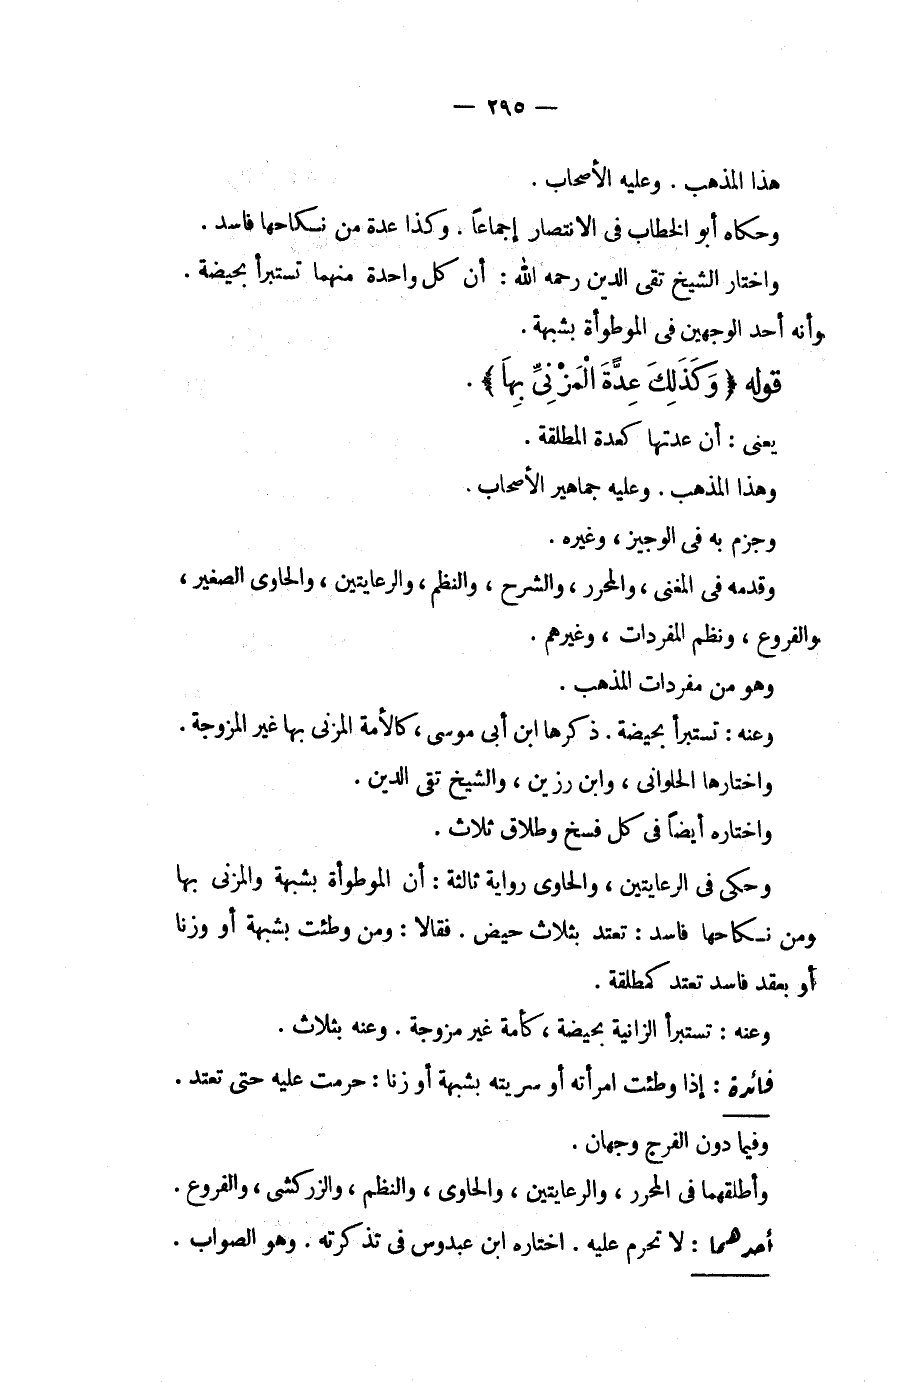 — ٢٩٥ —
هذا المذهب . وعليه الأصحاب .
وحكاه أبو الخطاب فى الانتصار إجماعاً . وكذا عدة من نكاحها فاسد .
واختار الشيخ تقى الدين رحمه الله : أن كل واحدة منهما تستبرأ بحيضة .
وأنه أحد الوجهين فى الموطوأة بشبهة .
قوله ﴿ وَكَذَلِكَ عِدَّةَ الْمَزْنِىِّ بِهَا ﴾ .
يعنى : أن عدتها كعدة المطلقة .
وهذا المذهب . وعليه جماهير الأصحاب .
وجزم به فى الوجيز ، وغيره .
وقدمه فى المغنى ، والمحرر ، والشرح ، والنظم ، والرعايتين ، والحاوى الصغير ،
والفروع ، ونظم المفردات ، وغيرهم .
وهو من مفردات المذهب .
وعنه : تستبرأ بحيضة . ذكرها ابن أبى موسى ، كالأمة المزنى بها غير المزوجة .
واختارها الحلوانى ، وابن رزين ، والشيخ تقى الدين .
واختاره أيضاً فى كل فسخ وطلاق ثلاث .
وحكى فى الرعايتين ، والحاوى رواية ثالثة : أن الموطوأة بشبهة والمزنى بها
ومن نكاحها فاسد : تعتد بثلاث حيض . فقالا : ومن وطئت بشبهة أو وزنا
أو بعقد فاسد تعتد كمطلقة .
وعنه : تستبرأ الزانية بحيضة ، كأمة غير مزوجة . وعنه بثلاث .
فائدة : إذا وطئت امرأته أو سريته بشبهة أو زنا : حرمت عليه حتى تعتد .
وفيما دون الفرج وجهان .
وأطلقهما فى المحرر ، والرعايتين ، والحاوى ، والنظم ، والزركشى ، والفروع .
أحدهما : لا تحرم عليه . اختاره ابن عبدوس فى تذكرته . وهو الصواب .